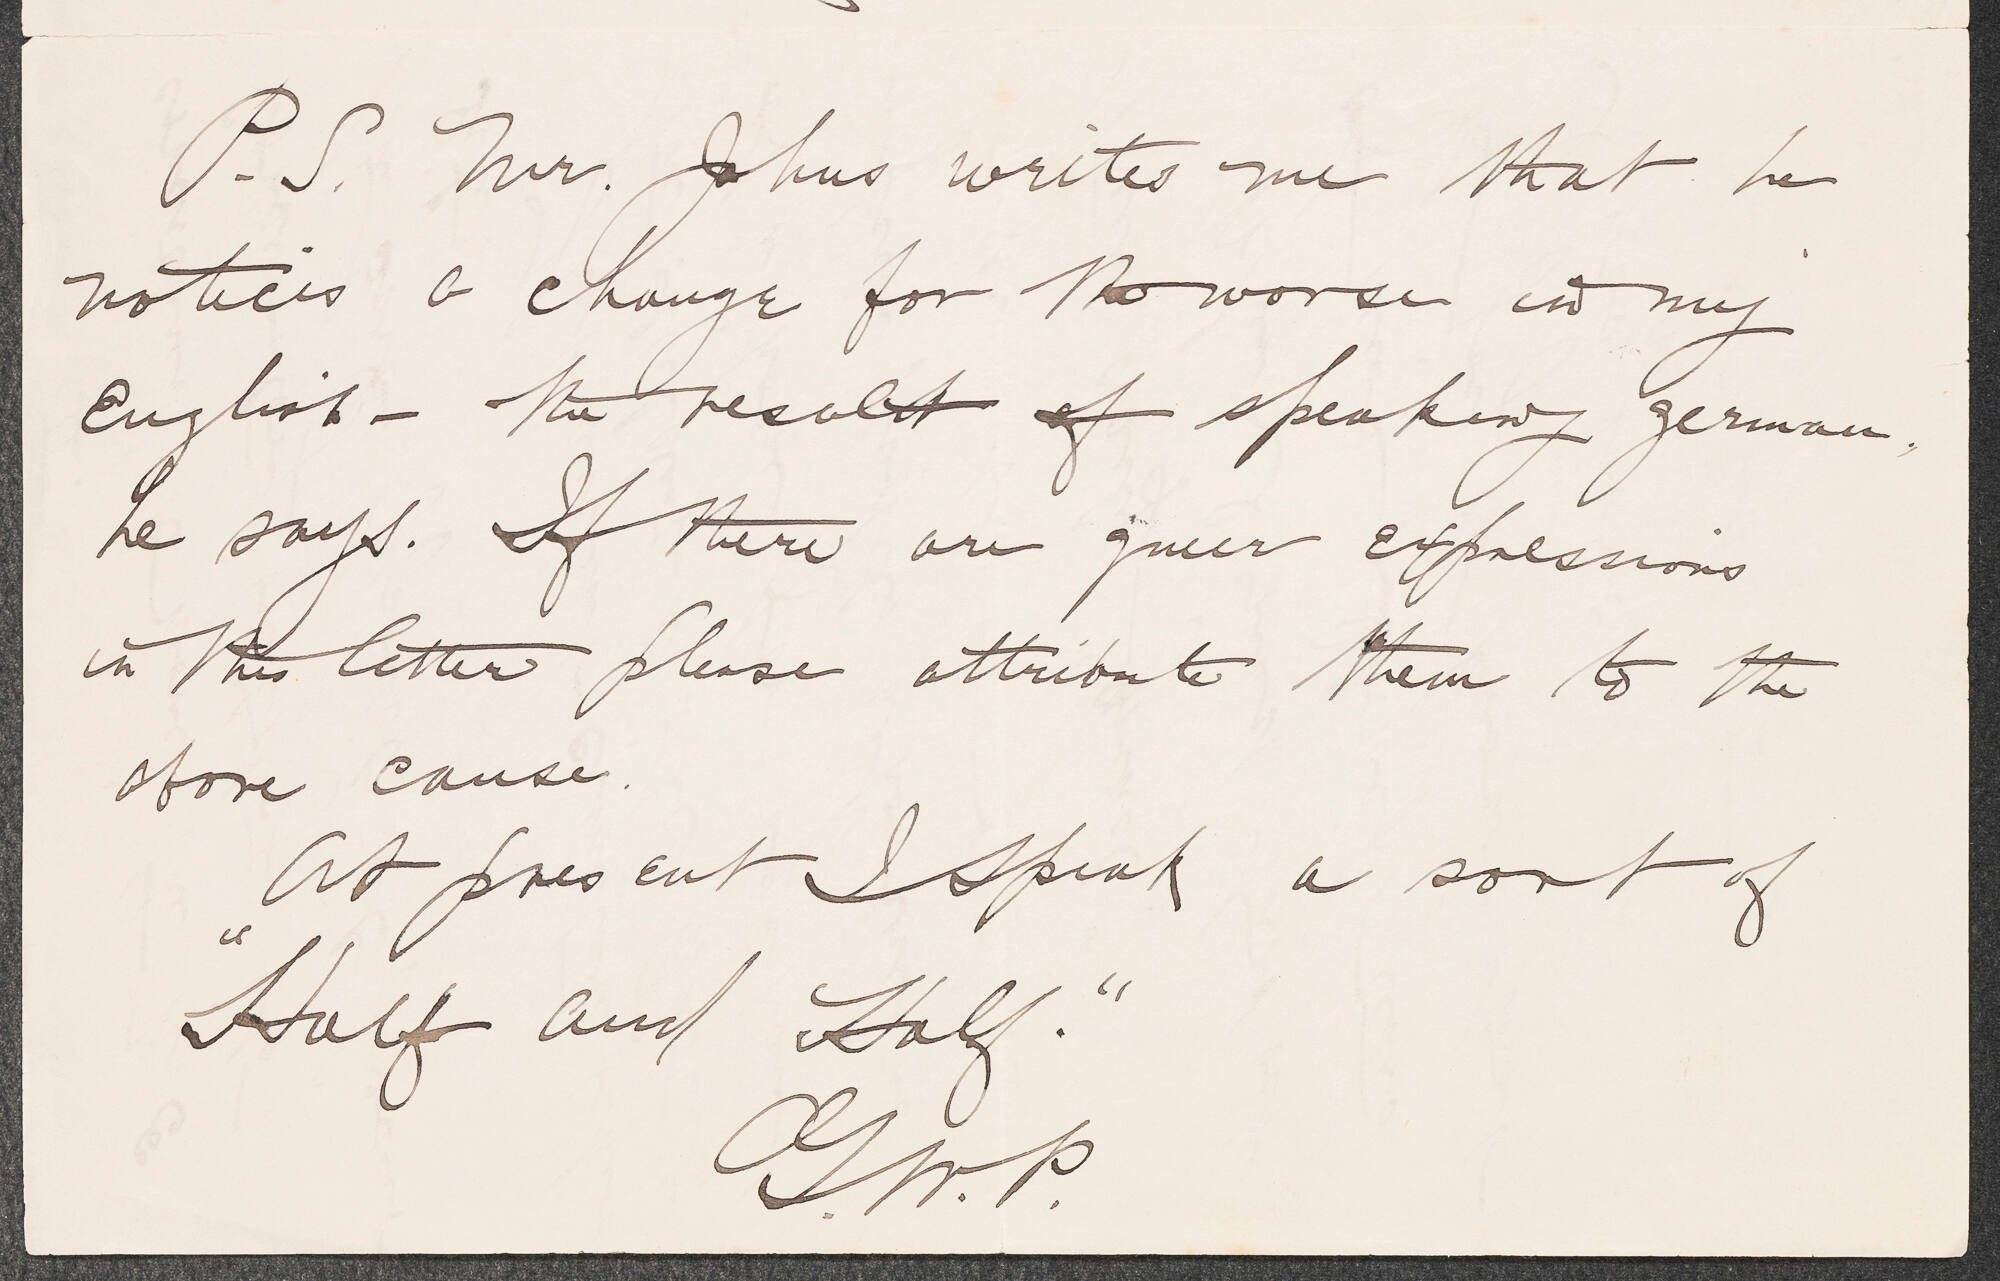 P.S. Mr. Johns writes me that he
notices a change for the worse in my
English - the result of speaking german,
he says. If there are queer expressions
in this letter please attribute them to the
above cause.
At present I speak a sort of
"Half and Half."
G.W.P.